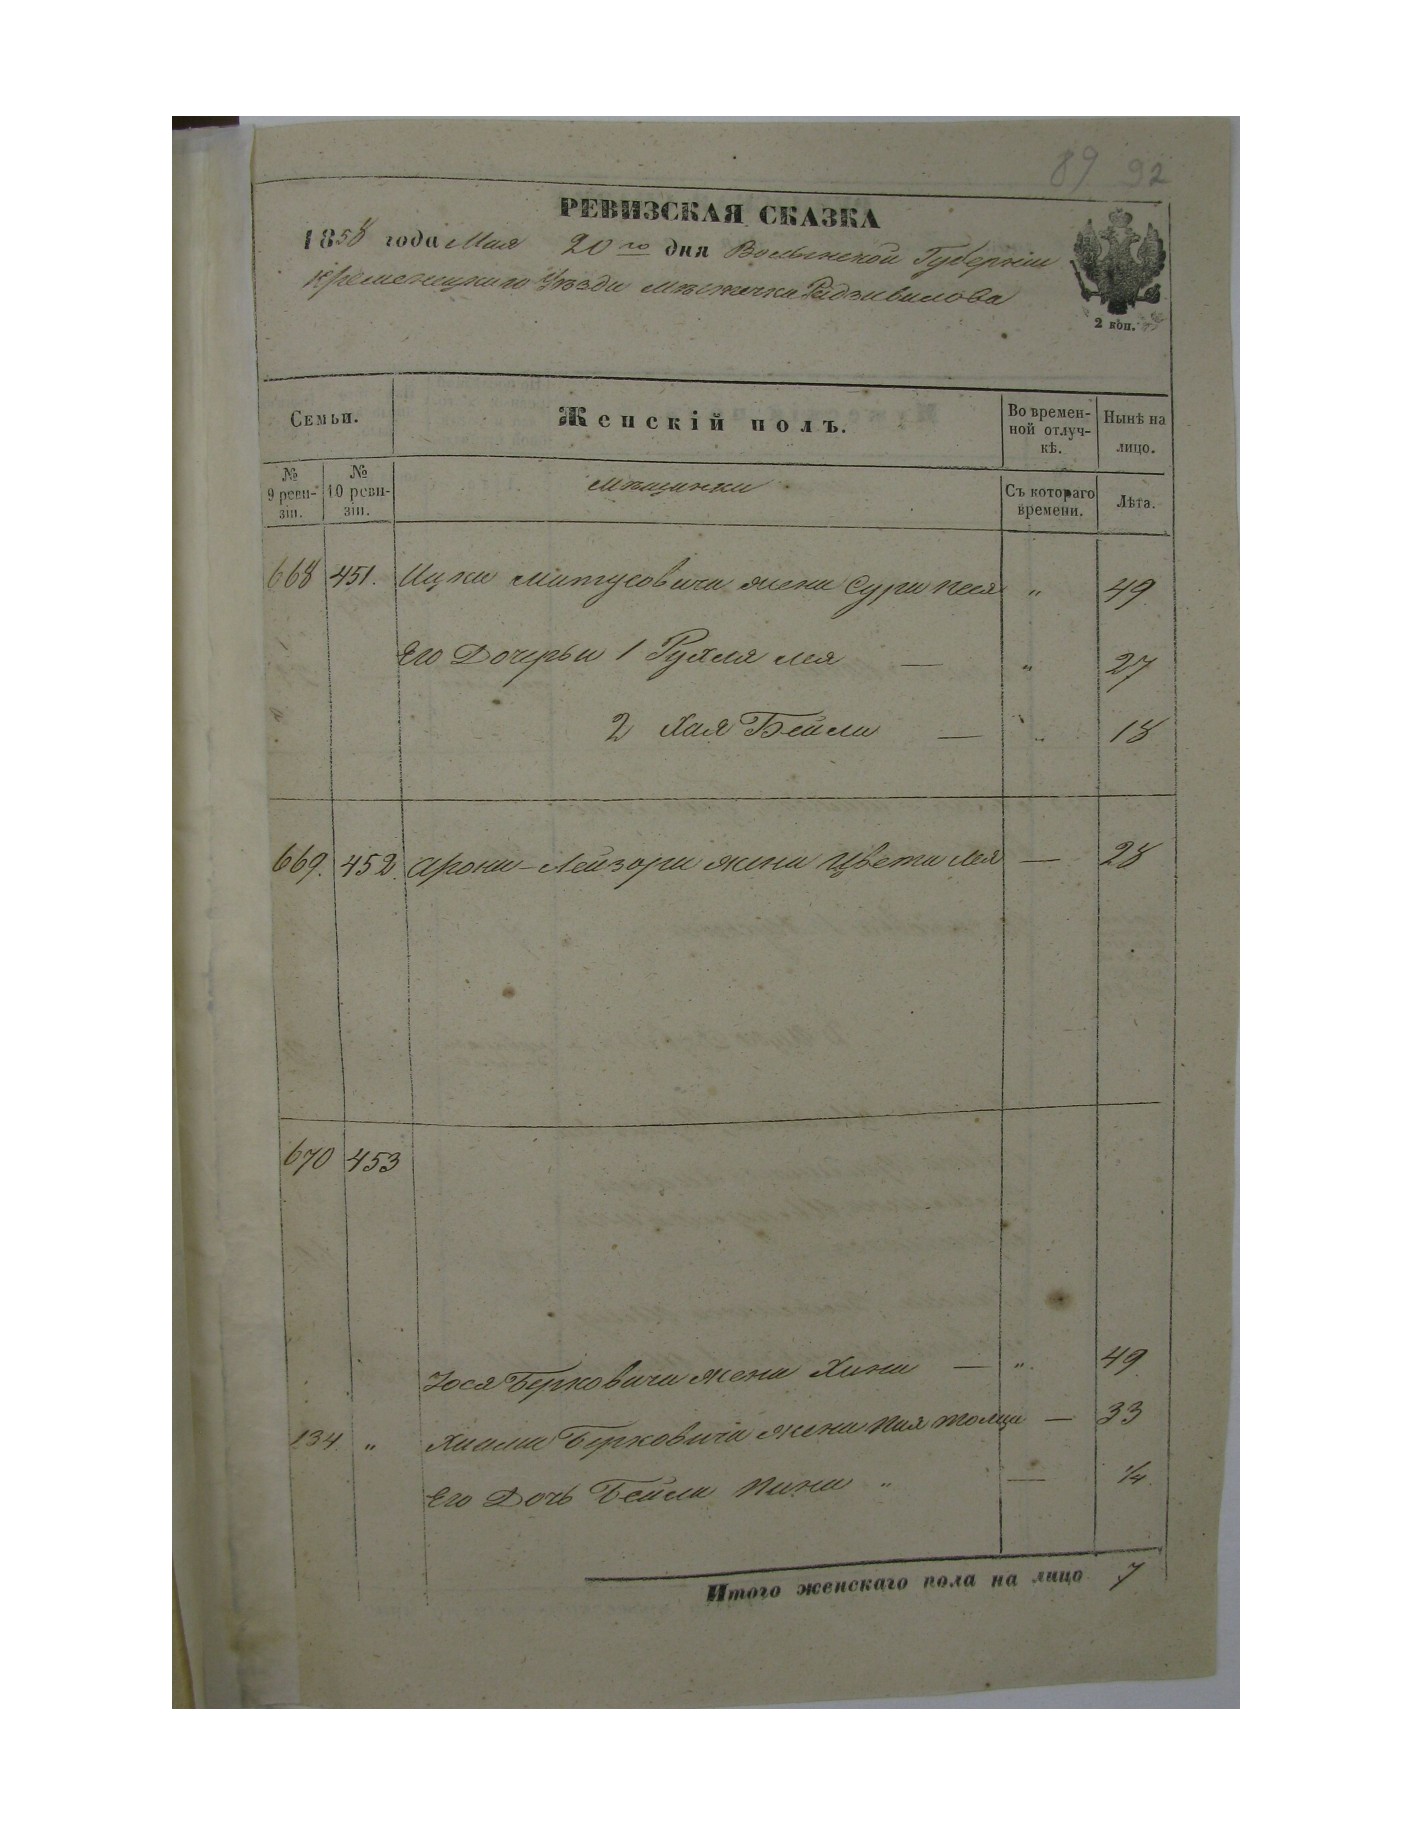 89 92
РЕВИЗСКАЯ СКАЗКА
1858 года Мая 20го дня Волынской Губерніи
Кременецкаго Уѣзда Мѣстечка Радзивилова
2 коп.
Семьи.
Женскій полъ.
Во времен-
ной отлуч-
кѣ.
Нынѣ на
лицо.
№
9 реви-
зіи.
№
10 реви-
зіи.
мѣщанки
Съ котораго
времени.
Лѣта.
668 451. Ицка жена Сура Песя " 49
Его Дочерьи 1 Рухля лея — " 27
2 Хая Бейла — " 18
669. 452. Арона-Лейзора жена Цвета Лея — 28
670 453
Іося Берковича жена Хана — " 49
134 " Берковича жена — 33
Его Дочь Бейла " — 1/4
Итого женскаго пола на лицо 7